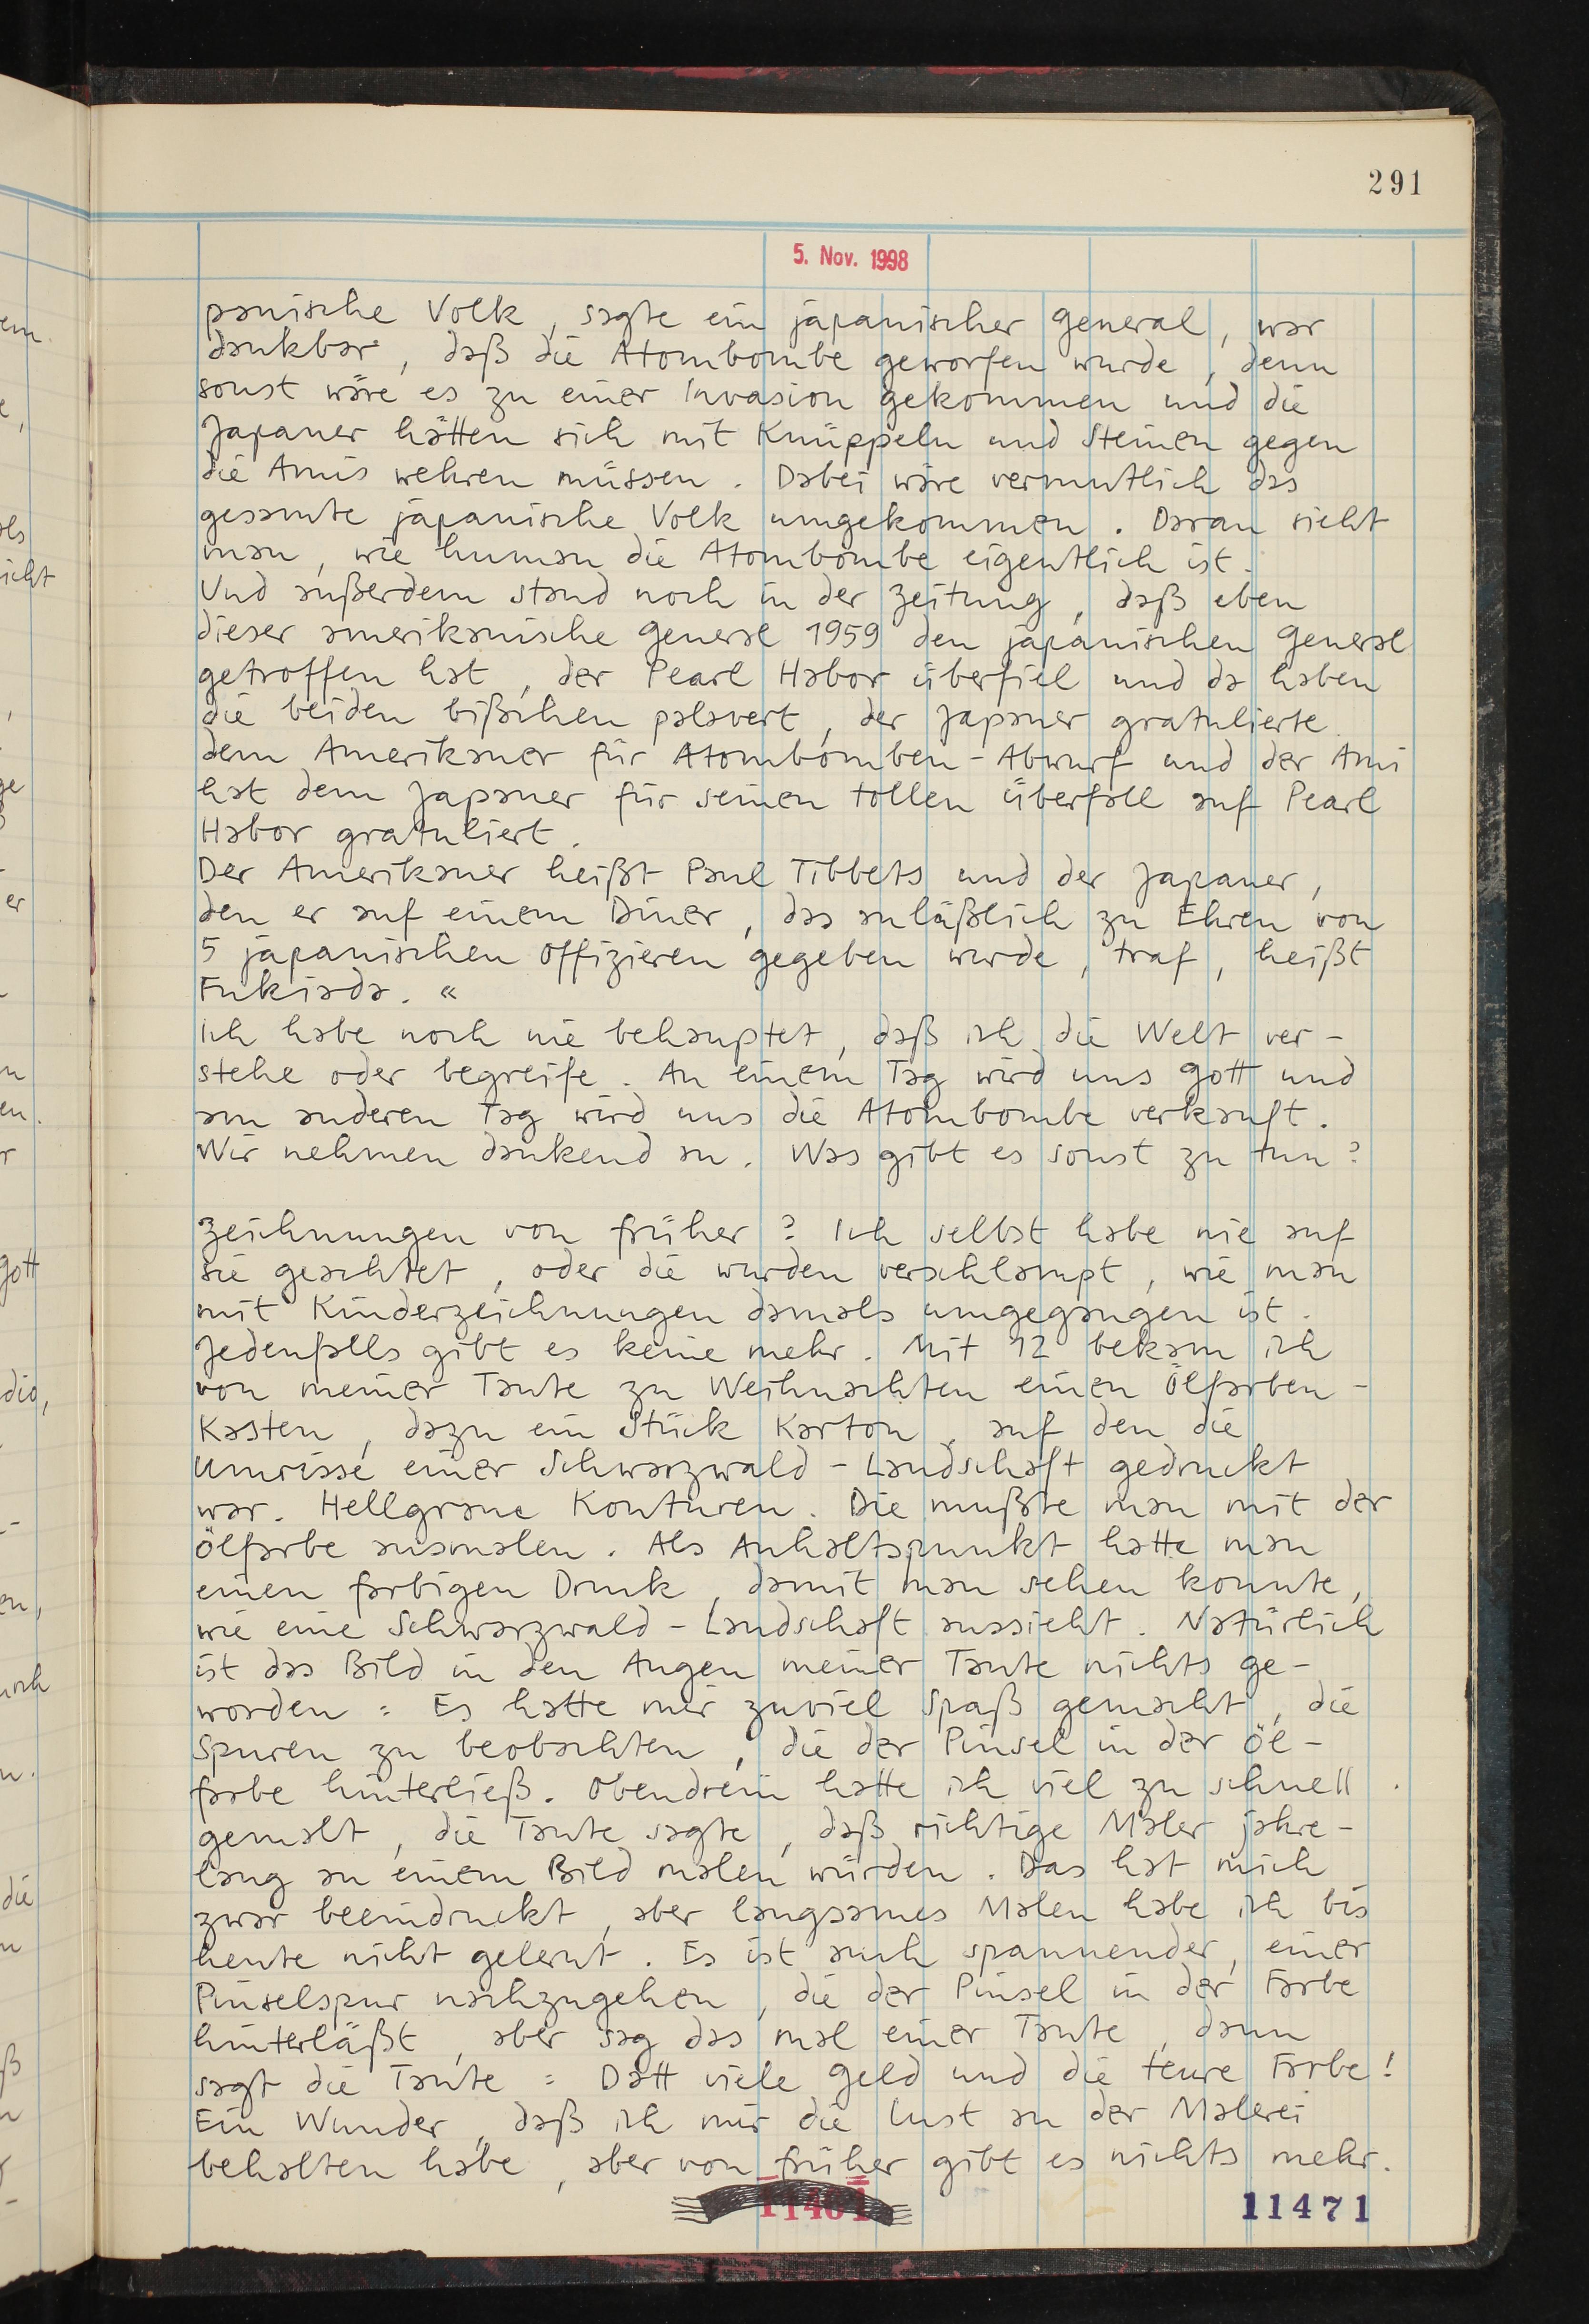 291
5. Nov. 1998
panische Volk, sagte ein japanischer General, war
dankbar, daß die Atombombe geworfen wurde, denn
sonst wäre es zu einer Invasion gekommen und die
Japaner hätten sich mit Knüppeln und Steinen gegen
die Amis wehren müssen. Dabei wäre vermutlich das
gesamte japanische Volk umgekommen. Daran sieht
man, wie human die Atombombe eigentlich ist.
Und außerdem stand noch in der Zeitung, daß eben
dieser amerikanische General 1959 den japanischen General
getroffen hat, der Pearl Habor überfiel und da haben
die beiden bißchen palavert, der Japaner gratulierte
dem Amerikaner für Atombomben-Abwurf und der Ami
hat dem Japaner für seinen tollen Überfall auf Pearl
Habor gratuliert.
Der Amerikaner heißt Paul Tibbets und der Japaner,
den er auf einem Diner, das anläßlich zu Ehren von
5 japanischen Offizieren gegeben wurde, traf, heißt
Fukiada. "
Ich habe noch nie behauptet, daß ich die Welt ver-
stehe oder begreife. An einem Tag wird uns Gott und
am anderen Tag wird uns die Atombombe verkauft.
Wir nehmen dankend an. Was gibt es sonst zu tun?
Zeichnungen von früher? Ich selbst habe nie auf
sie geachtet, oder die wurden verschlampt, wie man
mit Kinderzeichnungen damals umgegangen ist.
Jedenfalls gibt es keine mehr. Mit 12 bekam ich
von meiner Tante zu Weihnachten einen Ölfarben-
Kasten, dazu ein Stück Karton, auf den die
Umrisse einer Schwarzwald-Landschaft gedruckt
war. Hellgraue Konturen. Die mußte man mit der
Ölfarbe ausmalen. Als Anhaltspunkt hatte man
einen farbigen Druck, damit man sehen konnte,
wie eine Schwarzwald-Landschaft aussieht. Natürlich
ist das Bild in den Augen meiner Tante nichts ge-
worden: Es hatte mir zuviel Spaß gemacht, die
Spuren zu beobachten, die der Pinsel in der Öl-
farbe hinterließ. Obendrein hatte ich viel zu schnell
gemalt, die Tante sagte, daß richtige Maler jahre-
lang an einem Bild malen würden. Das hat mich
zwar beeindruckt, aber langsames Malen habe ich bis
heute nicht gelernt. Es ist auch spannender, einer
Pinselspur nachzugehen, die der Pinsel in der Farbe
hinterläßt, aber sag das mal einer Tante, dann
sagt die Tante: Datt viele Geld und die teure Farbe!
Ein Wunder, daß ich mir die Lust an der Malerei
behalten habe, aber von früher gibt es nichts mehr.
11471